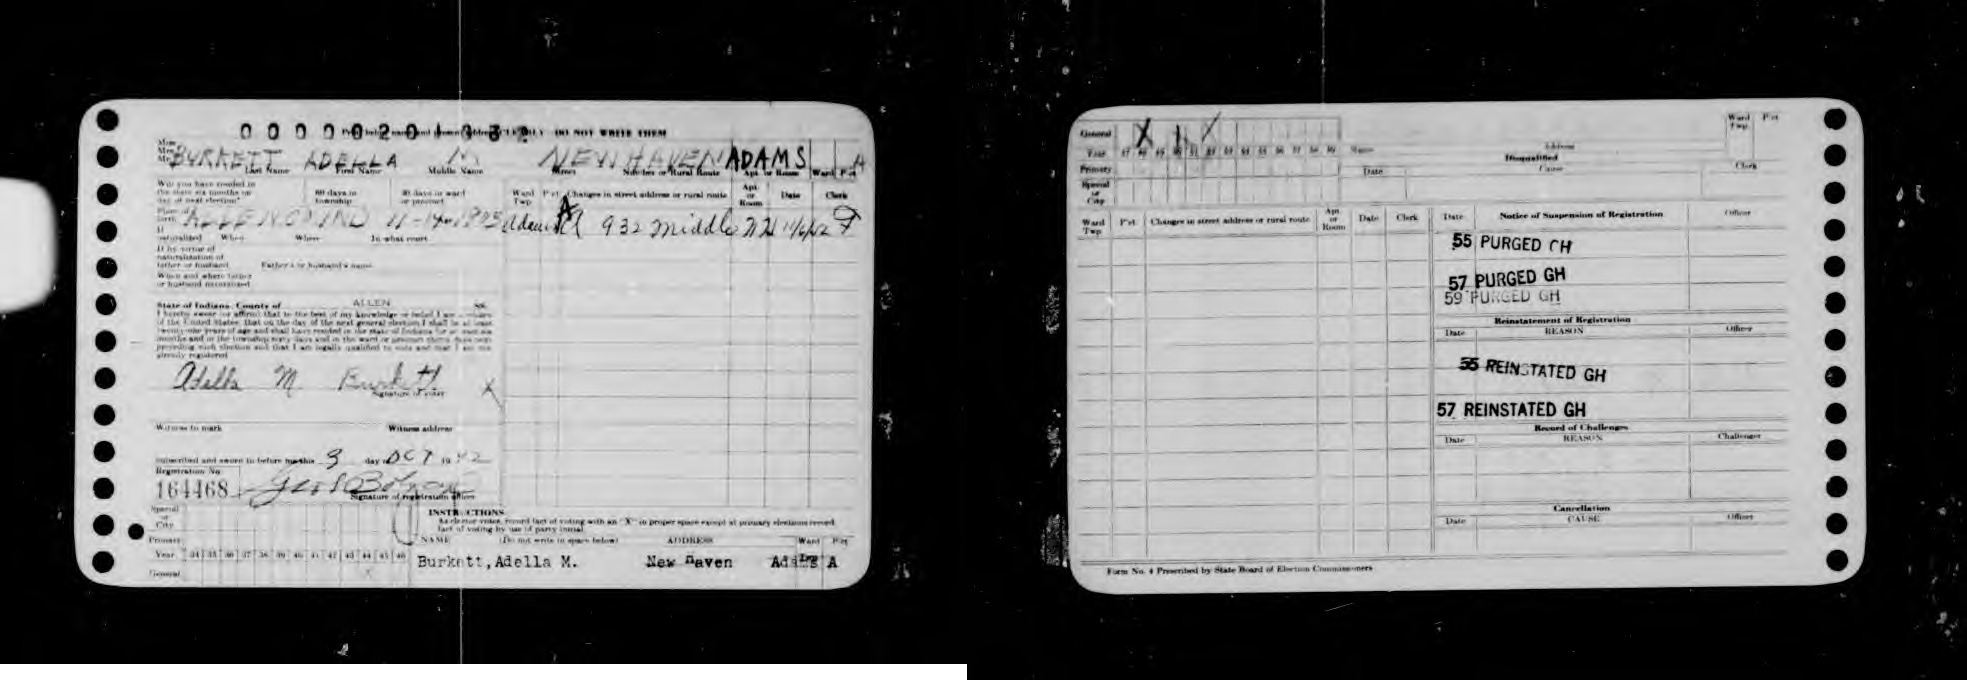 Print below name and present address CLEARLY DO NOT WRITE THEM
BURKETT ADELLA M NEW HAVEN ADAMS A
Last Name First Name Middle Name Street Number or Rural Route Apt. or Room Ward Pct
Will you have resided in the state six months on day of next election? 60 days in township 30 days in ward or precinct
Ward Twp. Pct Changes in street address or rural route Apt. or Room Date Clerk
Place of birth ALLEN CO IND
Adams A 932 Middle N H F
If naturalized When Where In what court
If by virtue of naturalization of father or husband Father's or husband's name
When and where father or husband naturalized
State of Indiana, County of ALLEN SS:
I hereby swear (or affirm) that to the best of my knowledge or belief I am a citizen
of the United States; that on the day of the next general election I shall be at least
twenty-one years of age and shall have resided in the state of Indiana for at least six
months and in the township sixty days and in the ward or precinct thirty days next
preceding such election and that I am legally qualified to vote and that I am not
already registered
Adella M Burkett X
Signature of voter
Witness to mark Witness address
Subscribed and sworn to before me this 3 day OCT 19 42
Registration No.
164468
Signature of registration officer
INSTRUCTIONS
As elector votes, record fact of voting with an "X" in proper space except at primary elections record
fact of voting by use of party initial.
Special or City
Primary
Year 34 35 36 37 38 39 40 41 42 43 44 45 46
General X
NAME (Do not write in space below) ADDRESS Ward Pct
Burkett, Adella M. New Haven Adams A
General X
Year 47 48 49 50 51 52 53 54 55 56 57 58 59
Primary
Special or City
Name Address Ward Twp. Pct
Disqualified
Date Cause Clerk
Ward Twp Pct Changes in street address or rural route Apt. or Room Date Clerk
Date Notice of Suspension of Registration Officer
55 PURGED GH
57 PURGED GH
59 PURGED GH
Reinstatement of Registration
Date REASON Officer
55 REINSTATED GH
57 REINSTATED GH
Record of Challenges
Date REASON Challenger
Cancellation
Date CAUSE Officer
Form No. 4 Prescribed by State Board of Election Commissioners